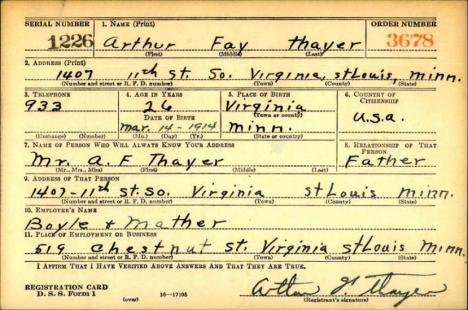 SERIAL NUMBER 1. NAME (Print) ORDER NUMBER
1226 Arthur Fay Thayer 3678
(First) (Middle) (Last)
2. ADDRESS (Print)
1407 11th St. So. Virginia, St Louis, Minn.
(Number and street or R. F. D. number) (Town) (County) (State)
3. TELEPHONE 4. AGE IN YEARS 5. PLACE OF BIRTH 6. COUNTRY OF CITIZENSHIP
933 26 Virginia
(Town or county)
DATE OF BIRTH U.S.a.
Mar. 14-1914 Minn.
(Exchange) (Number) (Mo.) (Day) (Yr.) (State or country)
7. NAME OF PERSON WHO WILL ALWAYS KNOW YOUR ADDRESS 8. RELATIONSHIP OF THAT PERSON
Mr. A. F Thayer Father
(Mr., Mrs., Miss) (First) (Middle) (Last)
9. ADDRESS OF THAT PERSON
1407-11th St. So. Virginia St Louis Minn.
(Number and street or R. F. D. number) (Town) (County) (State)
10. EMPLOYER'S NAME
Boyle & Mather
11. PLACE OF EMPLOYMENT OR BUSINESS
519 Chestnut St. Virginia St Louis Minn.
(Number and street or R. F. D. number) (Town) (County) (State)
I AFFIRM THAT I HAVE VERIFIED ABOVE ANSWERS AND THAT THEY ARE TRUE.
REGISTRATION CARD
D. S. S. Form 1 (over) 16—17105 Arthur F Thayer
(Registrant's signature)